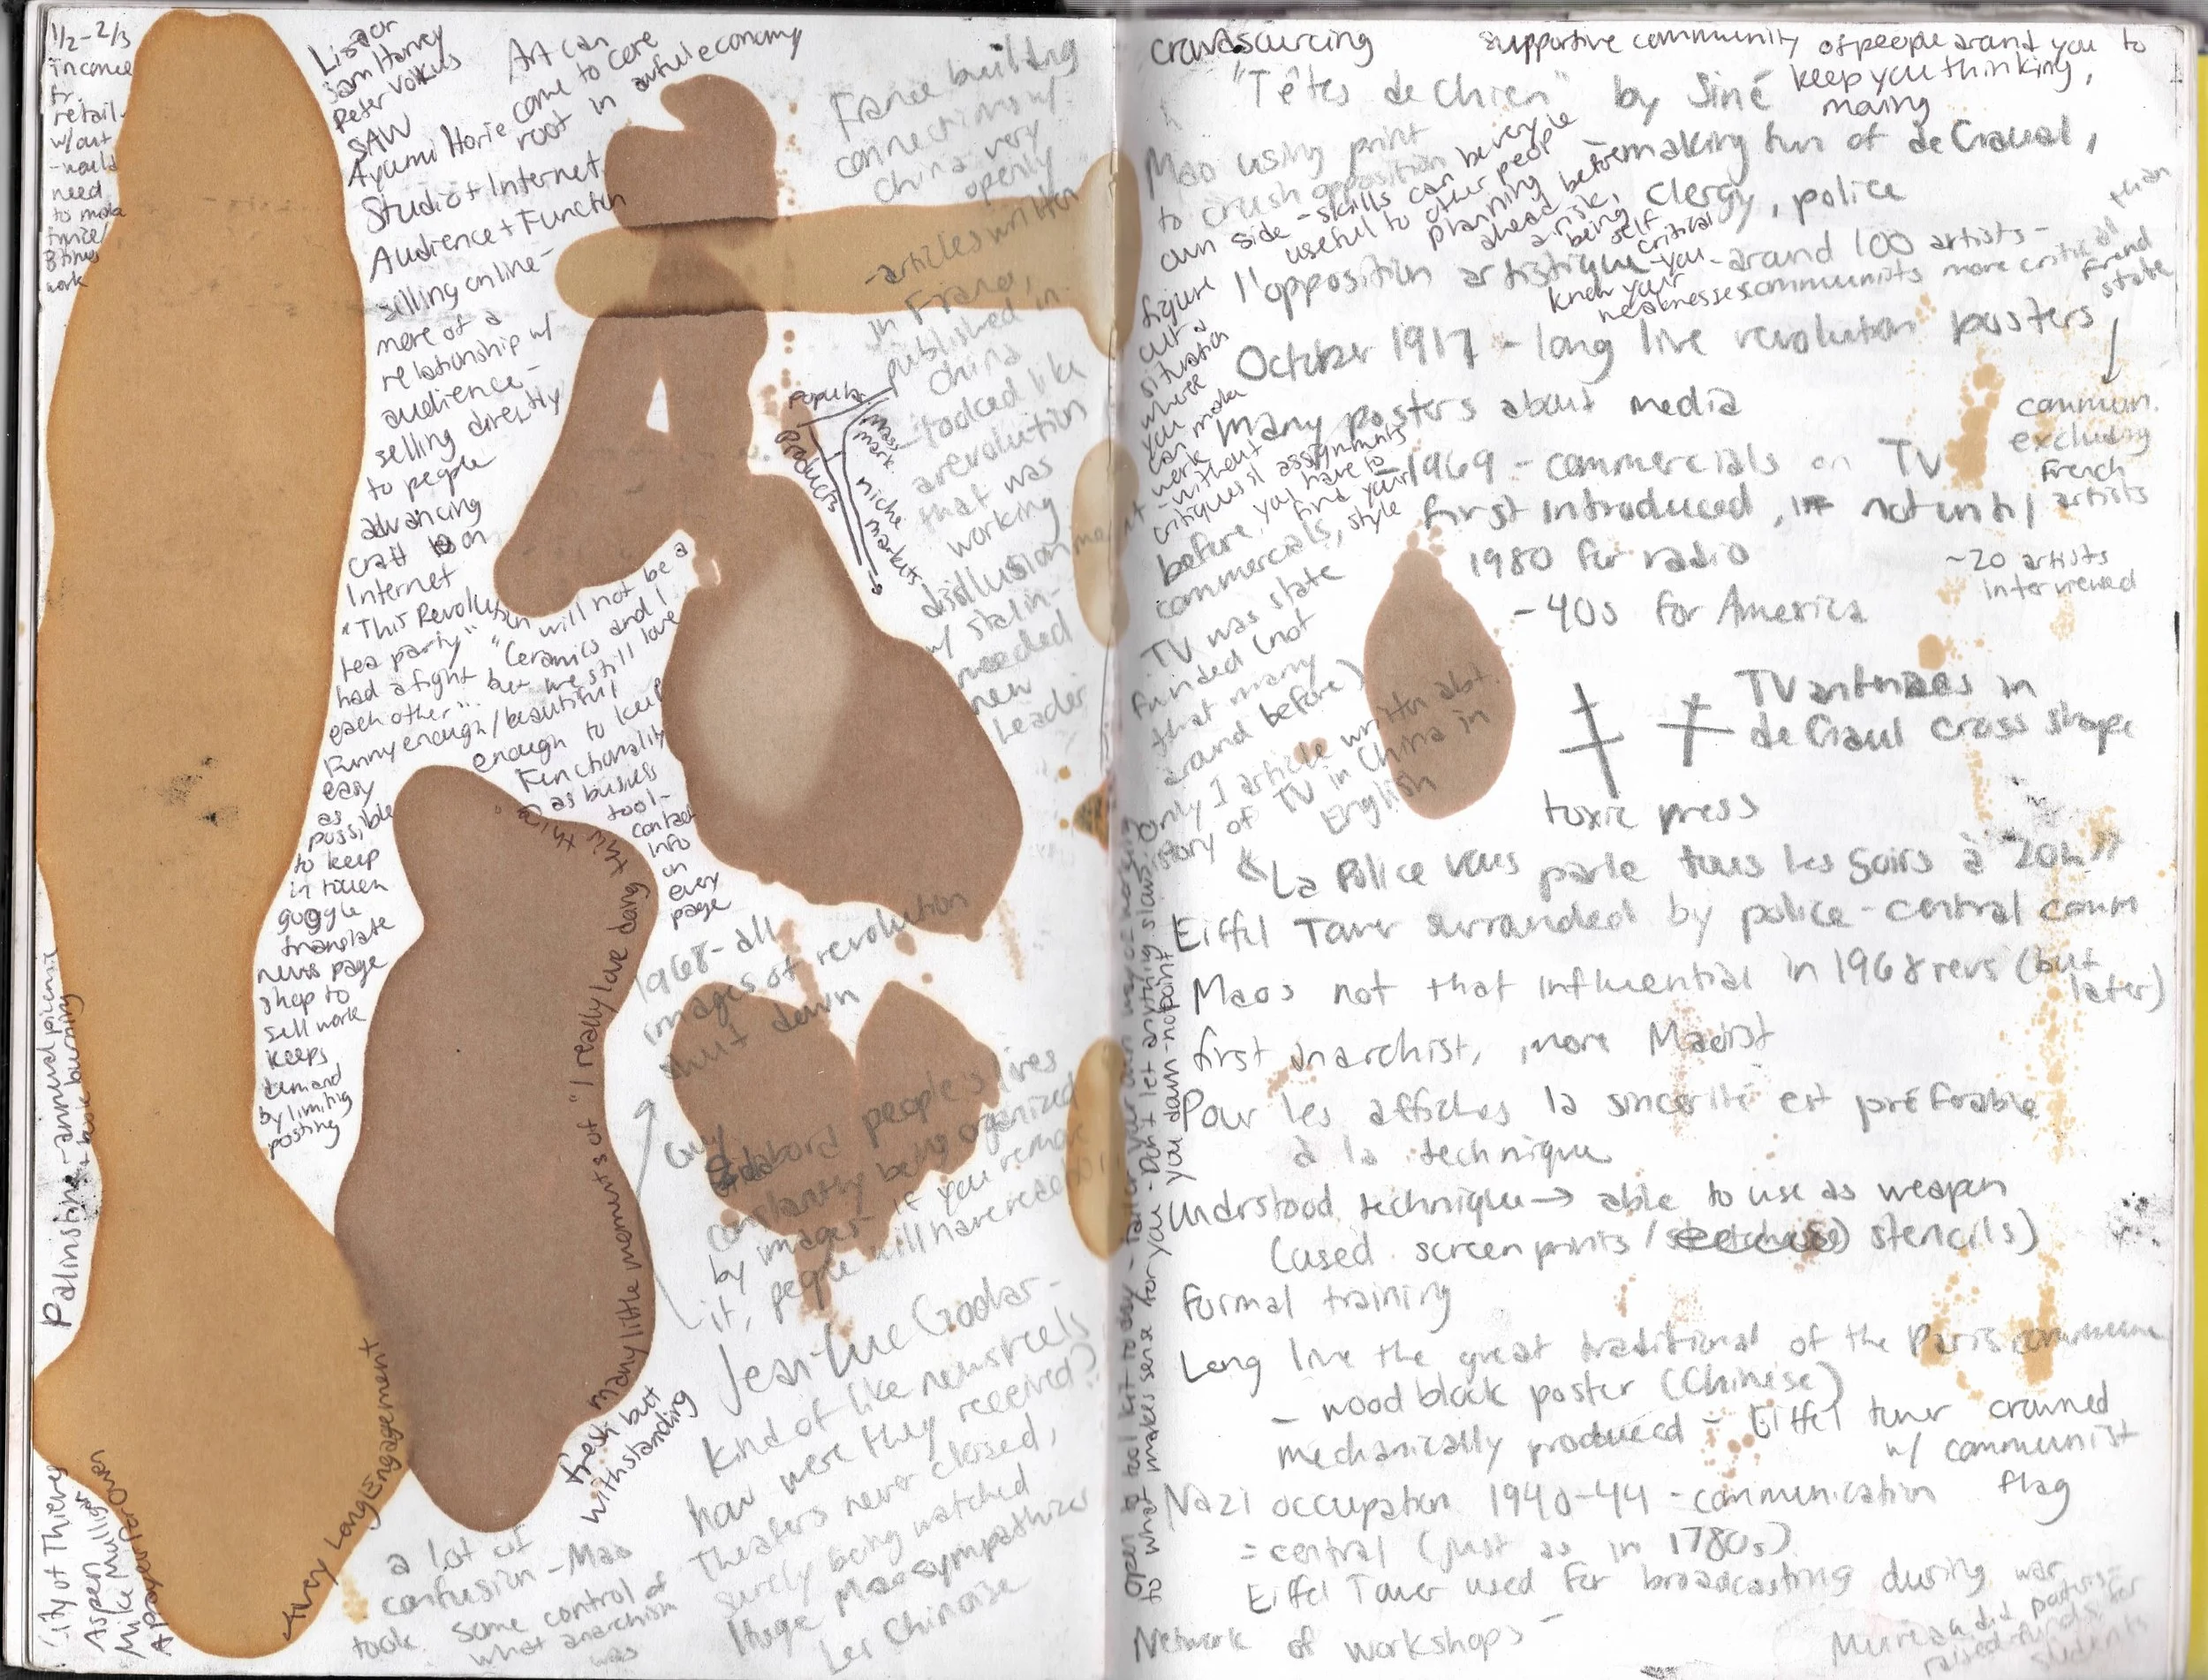 1/2 - 2/3
income
fr.
retail.
w/out
- would
need
to make
twice/
3 times
work
Listor
Sam Harvey
Peter Voulkus
SAW
Ayumi Horie
Art can
come to core
root in awful economy
Studio + Internet
Audience + Function
selling online -
more of a
relationship w/
audience -
selling directly
to people
advancing
craft on
Internet
"This Revolution will not be a
tea party" "Ceramics and I
had a fight but we still love
each other".
Funny enough/beautiful
enough to keep
easy
as
possible
to keep
in touch
google
translate
news page
shop to
sell work
keeps
demand
by limiting
posting
Functionality
as business
tool -
contact
info
on
every
page
many little moments of "I really love doing this"
fresh but
withstanding
Avery Long Engagement
City of Thieves
Aspen
Mike Mulligan
A Prayer for Owen
France building
connections w/
China very
openly
- articles written
in France,
published in
China
- looked like
a revolution
that was
working
disillusionment
w/ Stalin -
needed
new
Leader
popular
products
mass
mark.
niche
markets
1968 - all
images of revolution
shut down
Guy
Debord people's lives
constantly being organized
by images - if you remove
it, people will have
Jean-Luc Godar -
kind of like newsreels
how were they received?
Theaters never closed,
surely being watched
Huge Mao sympathizer
Les Chinoise
a lot of
confusion - Mao
took some control of
what anarchism
was
crowdsourcing
supportive community of people around you to
keep you thinking,
moving
"Têtes de Chien" by Siné
- making fun of de Graual,
clergy, police
Mao using print
to crush opposition
own side - skills can be very
useful to other people
planning before
ahead
a risk,
being self
critical
- you
know your
weaknesses
l'opposition artistique - around 100 artists -
communists more critical than
French
state
figure
out a
situation
where
you
can make
work
- without
critiques/assignments
before, you have to
find your
style
October 1917 - long live revolution posters
commun.
excluding
French
artists
~20 artists
interviewed
many posters about media
- 1969 - commercials on TV
first introduced, not until
1980 for radio
- 40s for America
commercials,
TV was state
funded (not
that many
around before)
only 1 article written abt.
story of TV in China in
English
TV antennaes in
de Graul cross shape
toxic press
& "La Police vous parle tous les soirs à 20h"
Eiffel Tower surrounded by police - central comm
Maos not that influential in 1968 revs (but
later)
first anarchist, more Maoist
Pour les affiches la sincerité est préférable
à la technique
Understood technique → able to use as weapon
(used screenprints / stencils)
formal training
Long live the great traditional of the Paris commune
- wood block poster (Chinese)
mechanically produced - Eiffel tower crowned
w/ communist
flag
Nazi occupation 1940-44 - communication
= central (just as in 1780s)
Eiffel Tower used for broadcasting during war
Network of workshops -